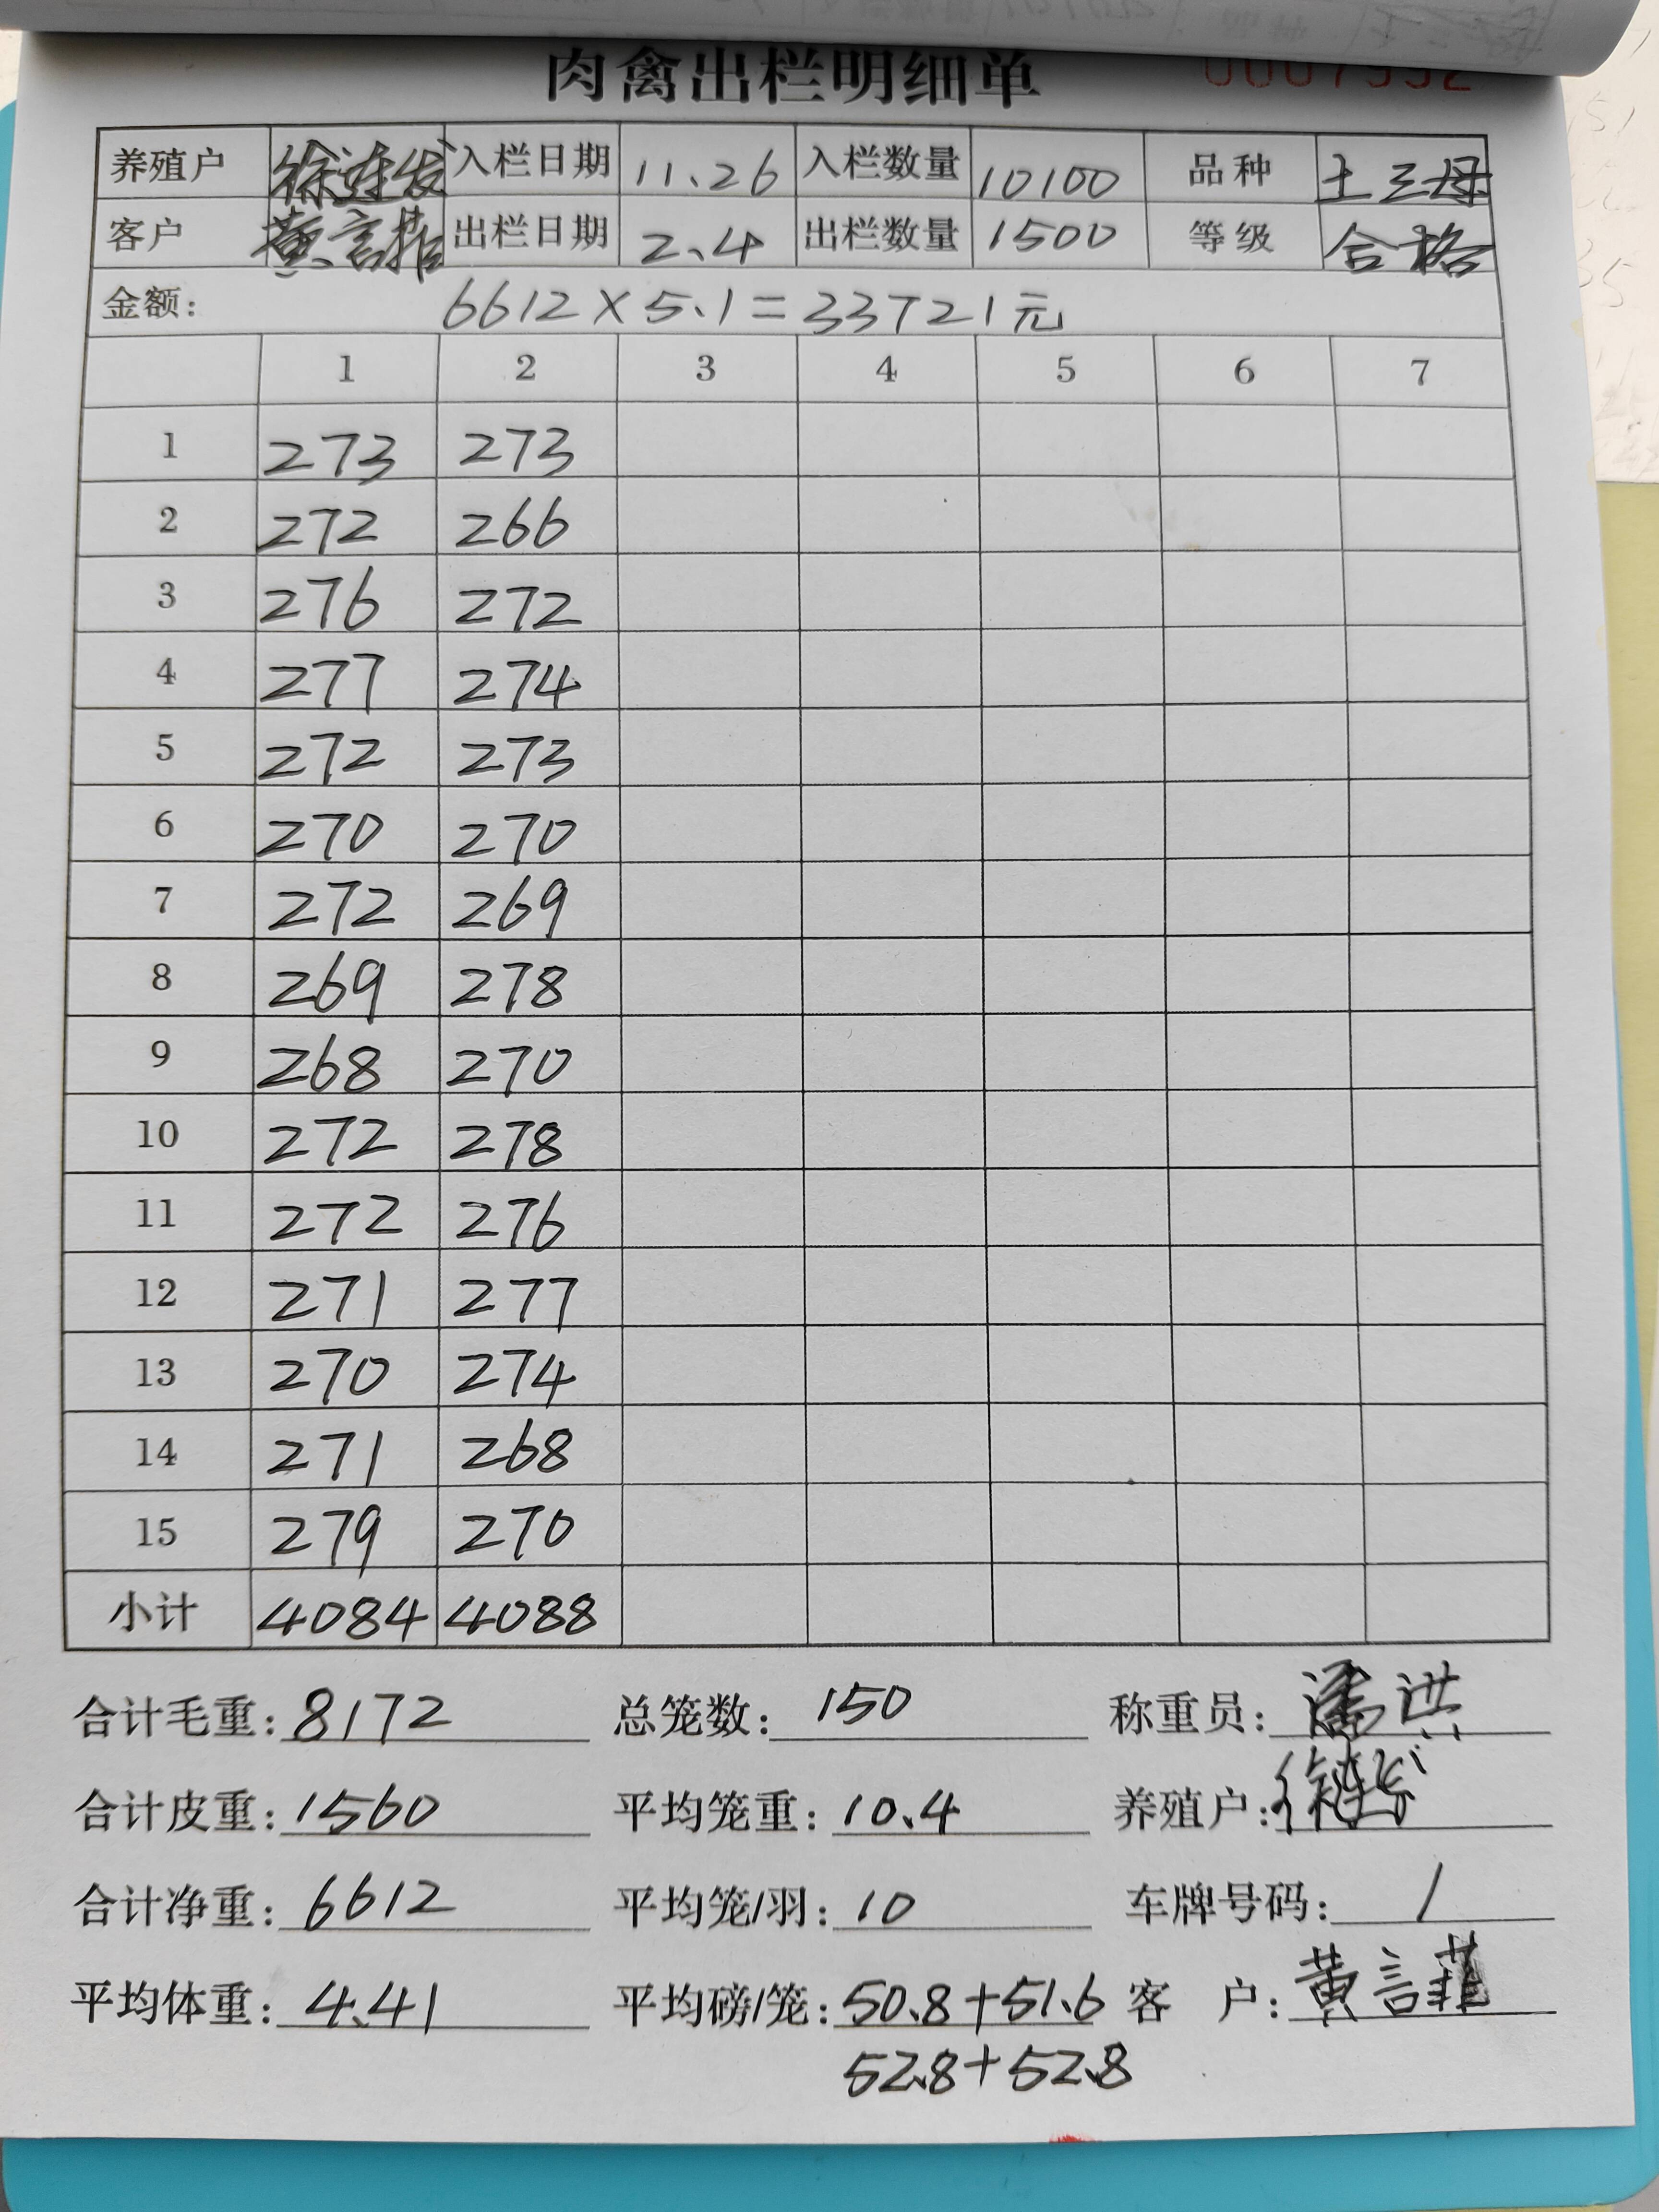 肉禽出栏明细单
养殖户 徐连发 入栏日期 11.26 入栏数量 10100 品种 土三母
客户 黄言 出栏日期 2.4 出栏数量 1500 等级 合格
金额: 6612×5.1=33721元
1 2 3 4 5 6 7
1 273 273
2 272 266
3 276 272
4 277 274
5 272 273
6 270 270
7 272 269
8 269 278
9 268 270
10 272 278
11 272 276
12 271 277
13 270 274
14 271 268
15 279 270
小计 4084 4088
合计毛重: 8172 总笼数: 150 称重员: 潘洪
合计皮重: 1560 平均笼重: 10.4 养殖户: 徐连发
合计净重: 6612 平均笼/羽: 10 车牌号码: /
平均体重: 4.41 平均磅/笼: 50.8+51.6 客 户: 黄言
52.8+52.8